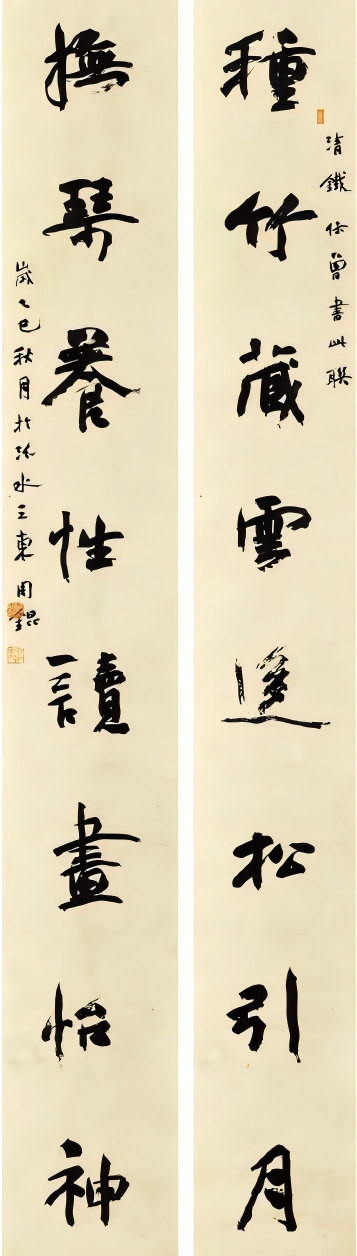 種竹藏雲邀松引月
清鐵保曾書此聯
撫琴養性讀畫怡神
歲乙巳秋月於水之東 錕